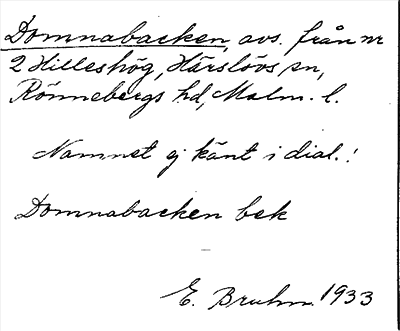 Domnabacken, avs. från nr
2 Hilleshög, Härslövs sn,
Rönnebergs hd, Malm. l.
Namnet ej känt i dial.!
Domnabacken bek
E. Bruhn 1933